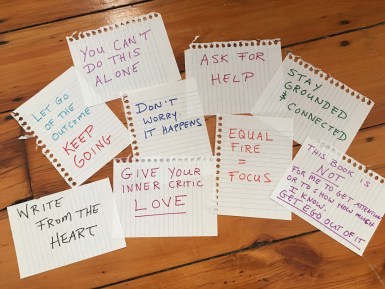 YOU CAN'T
DO THIS
ALONE
ASK FOR
HELP
STAY
GROUNDED
& CONNECTED
LET GO
OF THE
OUTCOME
KEEP
GOING
DON'T
WORRY
IT HAPPENS
EQUAL
FIRE
=
FOCUS
THIS BOOK IS
NOT
FOR ME TO GET ATTENTION
OR TO SHOW HOW MUCH
I KNOW.
GET EGO OUT OF IT
GIVE YOUR
INNER CRITIC
LOVE
WRITE
FROM THE
HEART